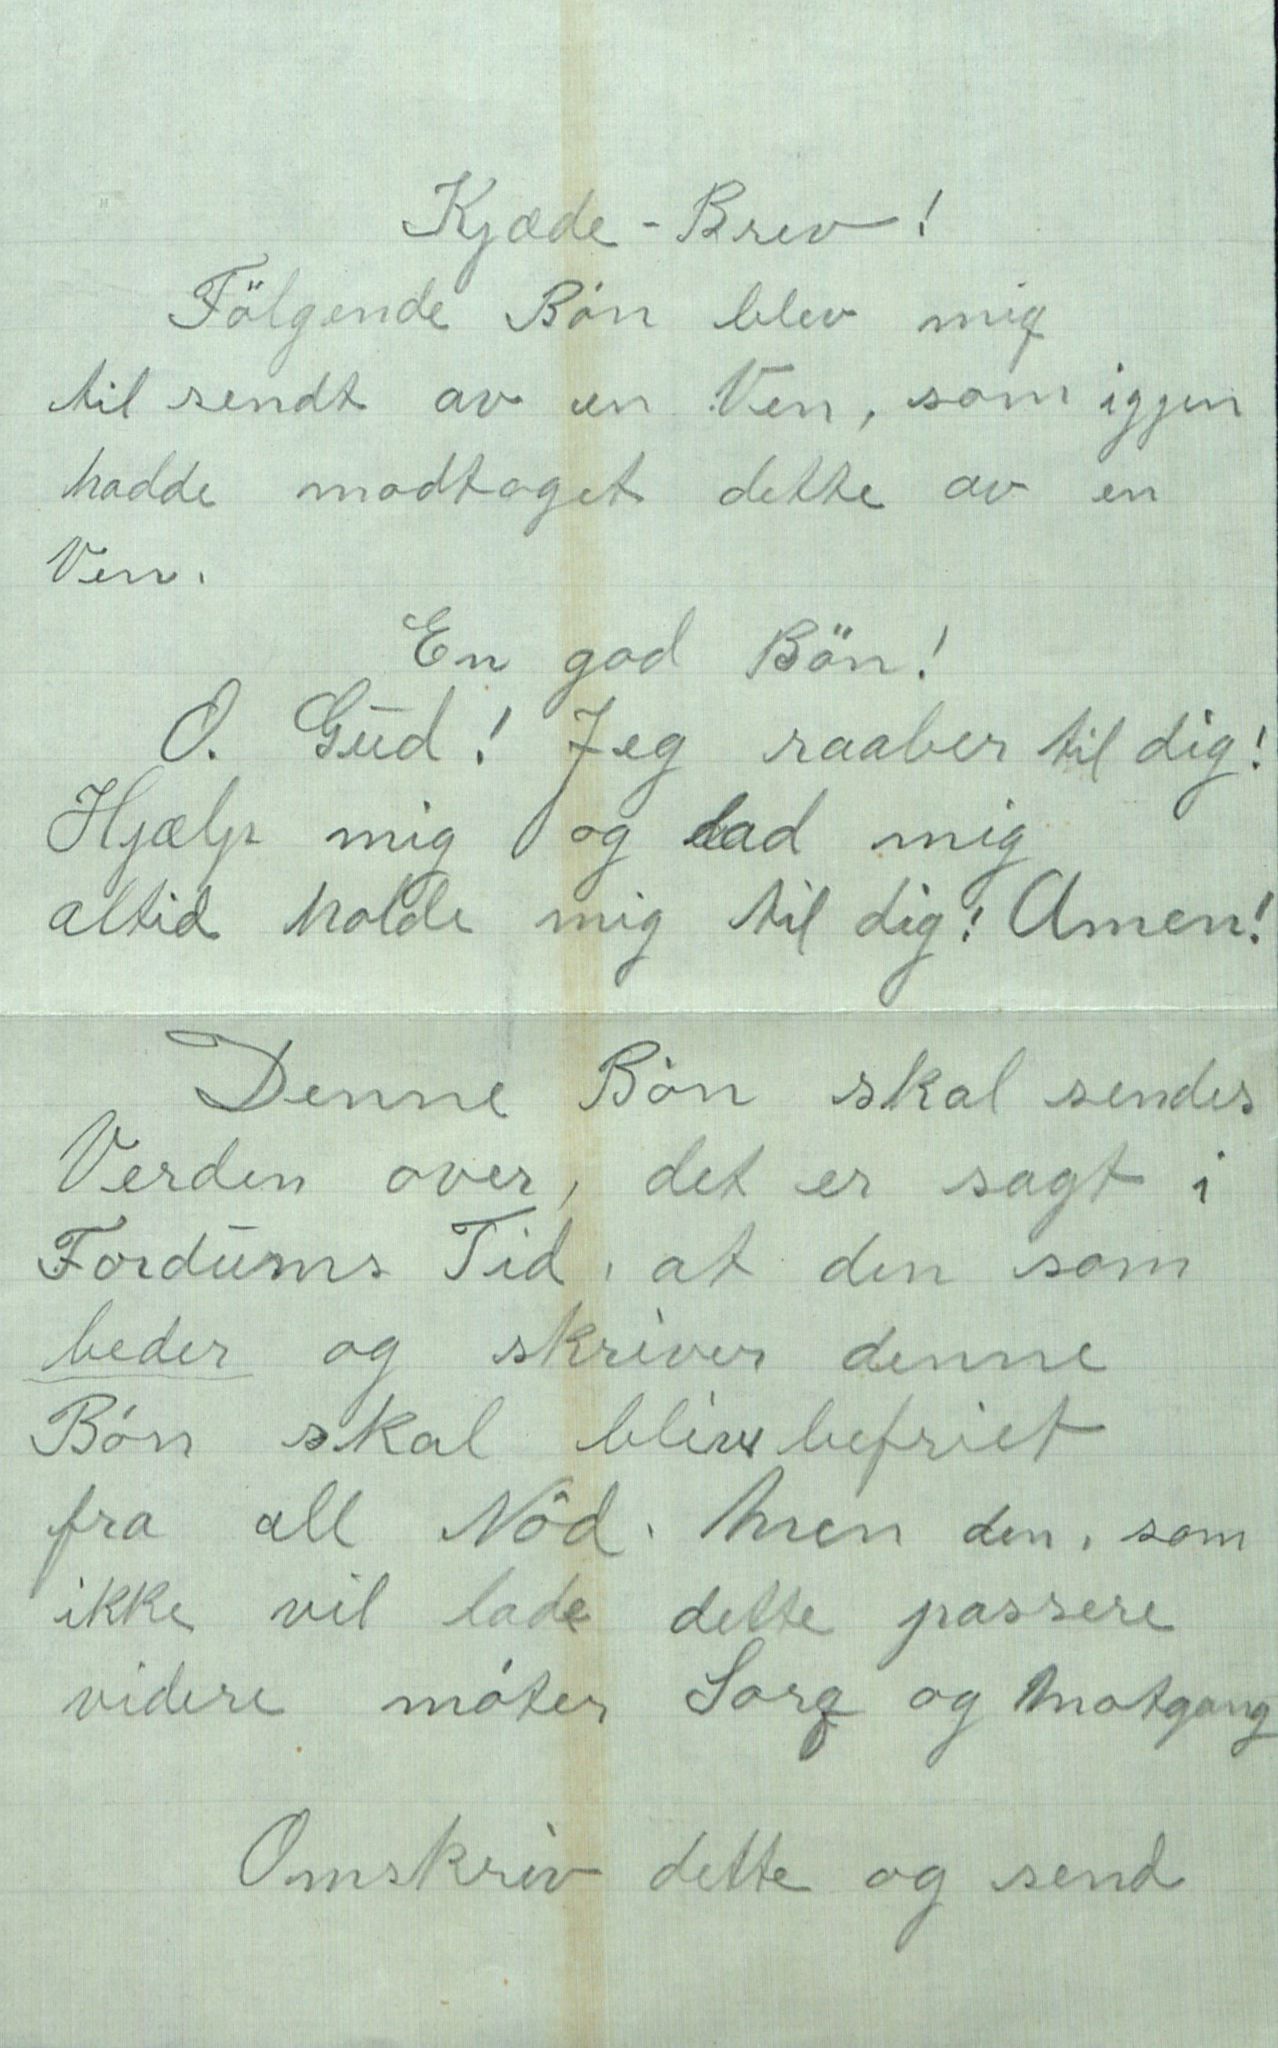 Kjæde-Brev!
Fölgende Bön blev mig
til sendt av en Ven, som iggen
hadde modtaget dette av en
Ven.
En god Bön!
O. Gud! Jeg raaber til dig!
Hjælp mig og lad mig
altid holde mig til dig! Amen!
Denne Bön skal sendes
Verden over, det er sagt i
Fordums Tid, at den som
beder og skriver denne
Bön skal blive befriet
fra all Nöd. Men den, som
ikke vil lade dette passere
videre möter Sorg og Motgang
Omskriv dette og send